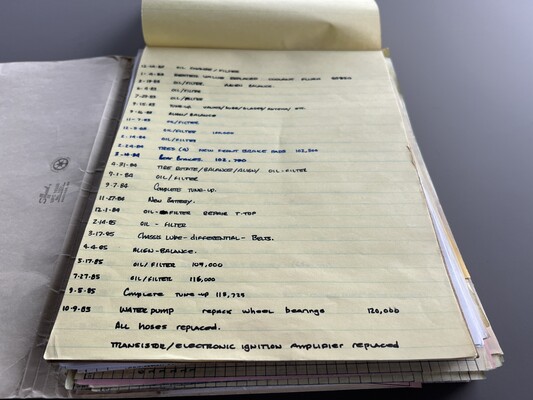 OIL CHANGE/FILTER
REPLACED COOLANT FLUSH
OIL/FILTER ALIGN BALANCE.
OIL/FILTER
7-25-83 OIL/FILTER
TUNE-UP
ALIGN/BALANCE
11-7-83 OIL/FILTER
OIL/FILTER
OIL/FILTER
2-24-84 TIRES (4) NEW FRONT BRAKE PADS
REAR BRAKES. 102,700
4-31-84 TIRE ROTATE/BALANCE/ALIGN/ OIL-FILTER
9-1-84 OIL/FILTER
9-7-84 COMPLETE TUNE-UP.
11-27-84 NEW BATTERY.
12-1-84 OIL-FILTER REPAIR T-TOP
2-14-85 OIL - FILTER
3-17-85 CHASSIS LUBE- DIFFERENTIAL- BELTS.
4-4-85 ALIGN-BALANCE.
5-17-85 OIL/FILTER 109,000
7-27-85 OIL/FILTER 115,000
9-5-85 COMPLETE TUNE-UP 118,729
10-9-85 WATER PUMP REPACK WHEEL BEARINGS 120,000
ALL HOSES REPLACED.
TRANSISTOR/ELECTRONIC IGNITION AMPLIFIER REPLACED